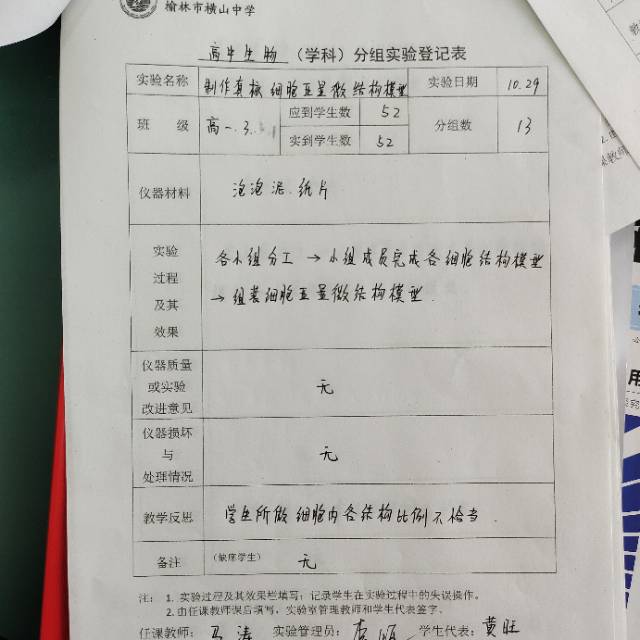 榆林市横山中学
高中生物 (学科) 分组实验登记表
实验名称 制作真核细胞亚显微结构模型 实验日期 10.29
班 级 高一.3. 应到学生数 52 分组数 13
实到学生数 52
仪器材料 泡泡泥.纸片
实验过程及其效果 各小组分工 → 小组成员完成各细胞结构模型
→ 组装细胞亚显微结构模型.
仪器质量或实验改进意见 无
仪器损坏与处理情况 无
教学反思 学生所做细胞内各结构比例不恰当.
备注 (缺席学生) 无
注: 1. 实验过程及其效果栏填写: 记录学生在实验过程中的失误操作。
2. 由任课教师课后填写, 实验室管理教师和学生代表签字。
任课教师: 马涛 实验管理员: 学生代表: 黄旺